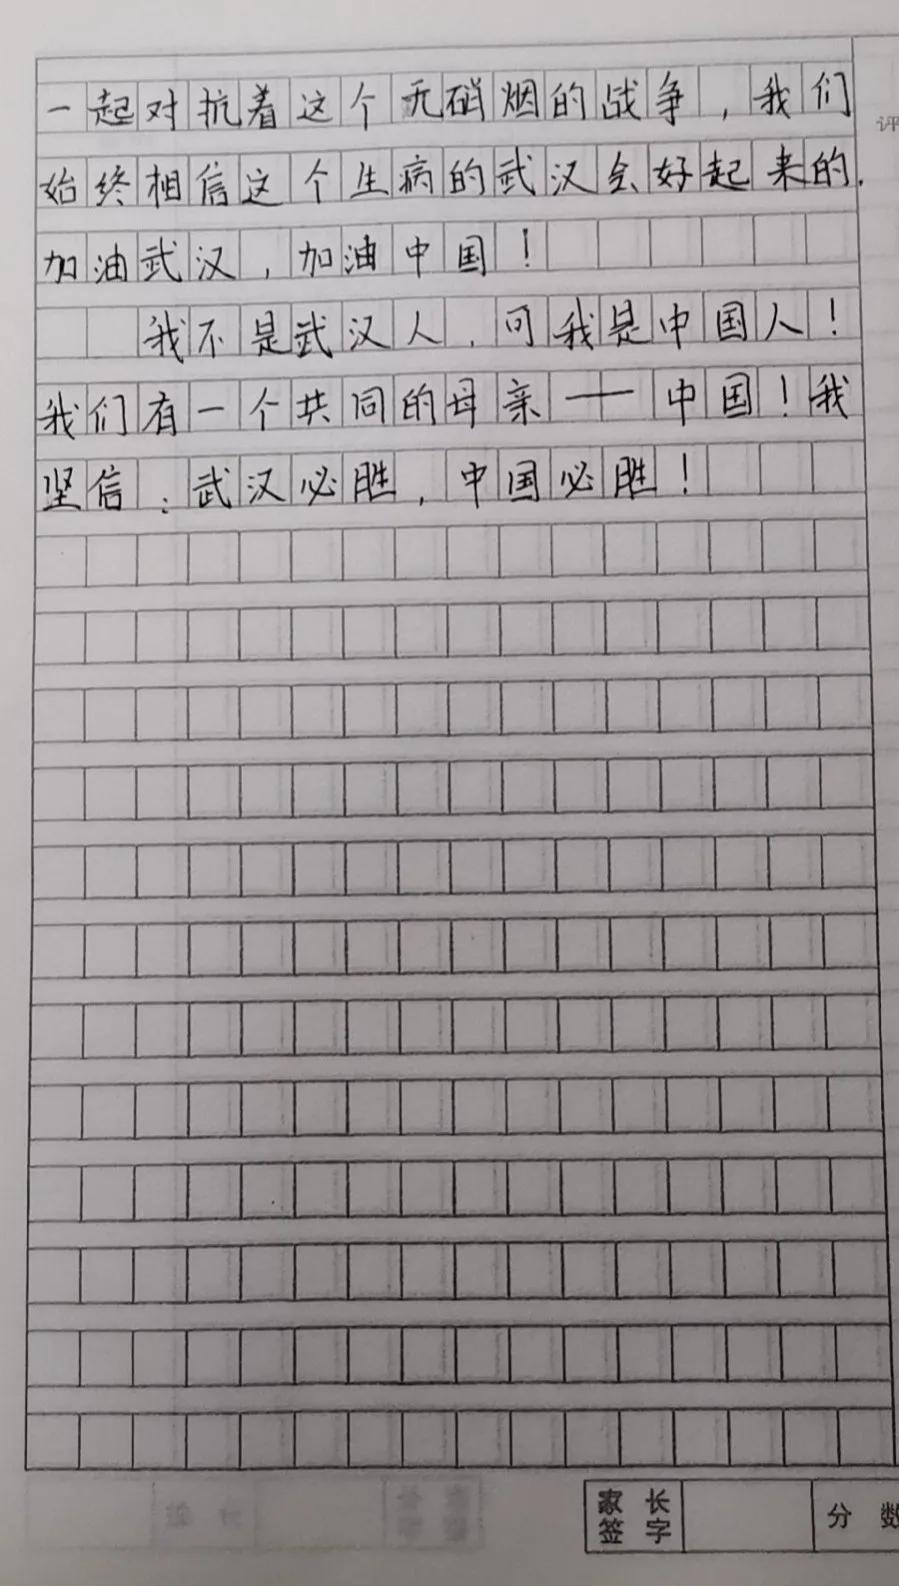 一起对抗着这个无硝烟的战争，我们
评
始终相信这个生病的武汉会好起来的.
加油武汉，加油中国！
我不是武汉人，可我是中国人！
我们有一个共同的母亲——中国！我
坚信：武汉必胜，中国必胜！
家长签字
分数